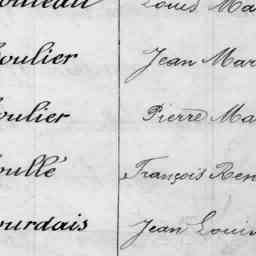 Louis Ma
oulier Jean Mar
oulier Pierre Ma
oullé François Ren
ourdais Jean Louis